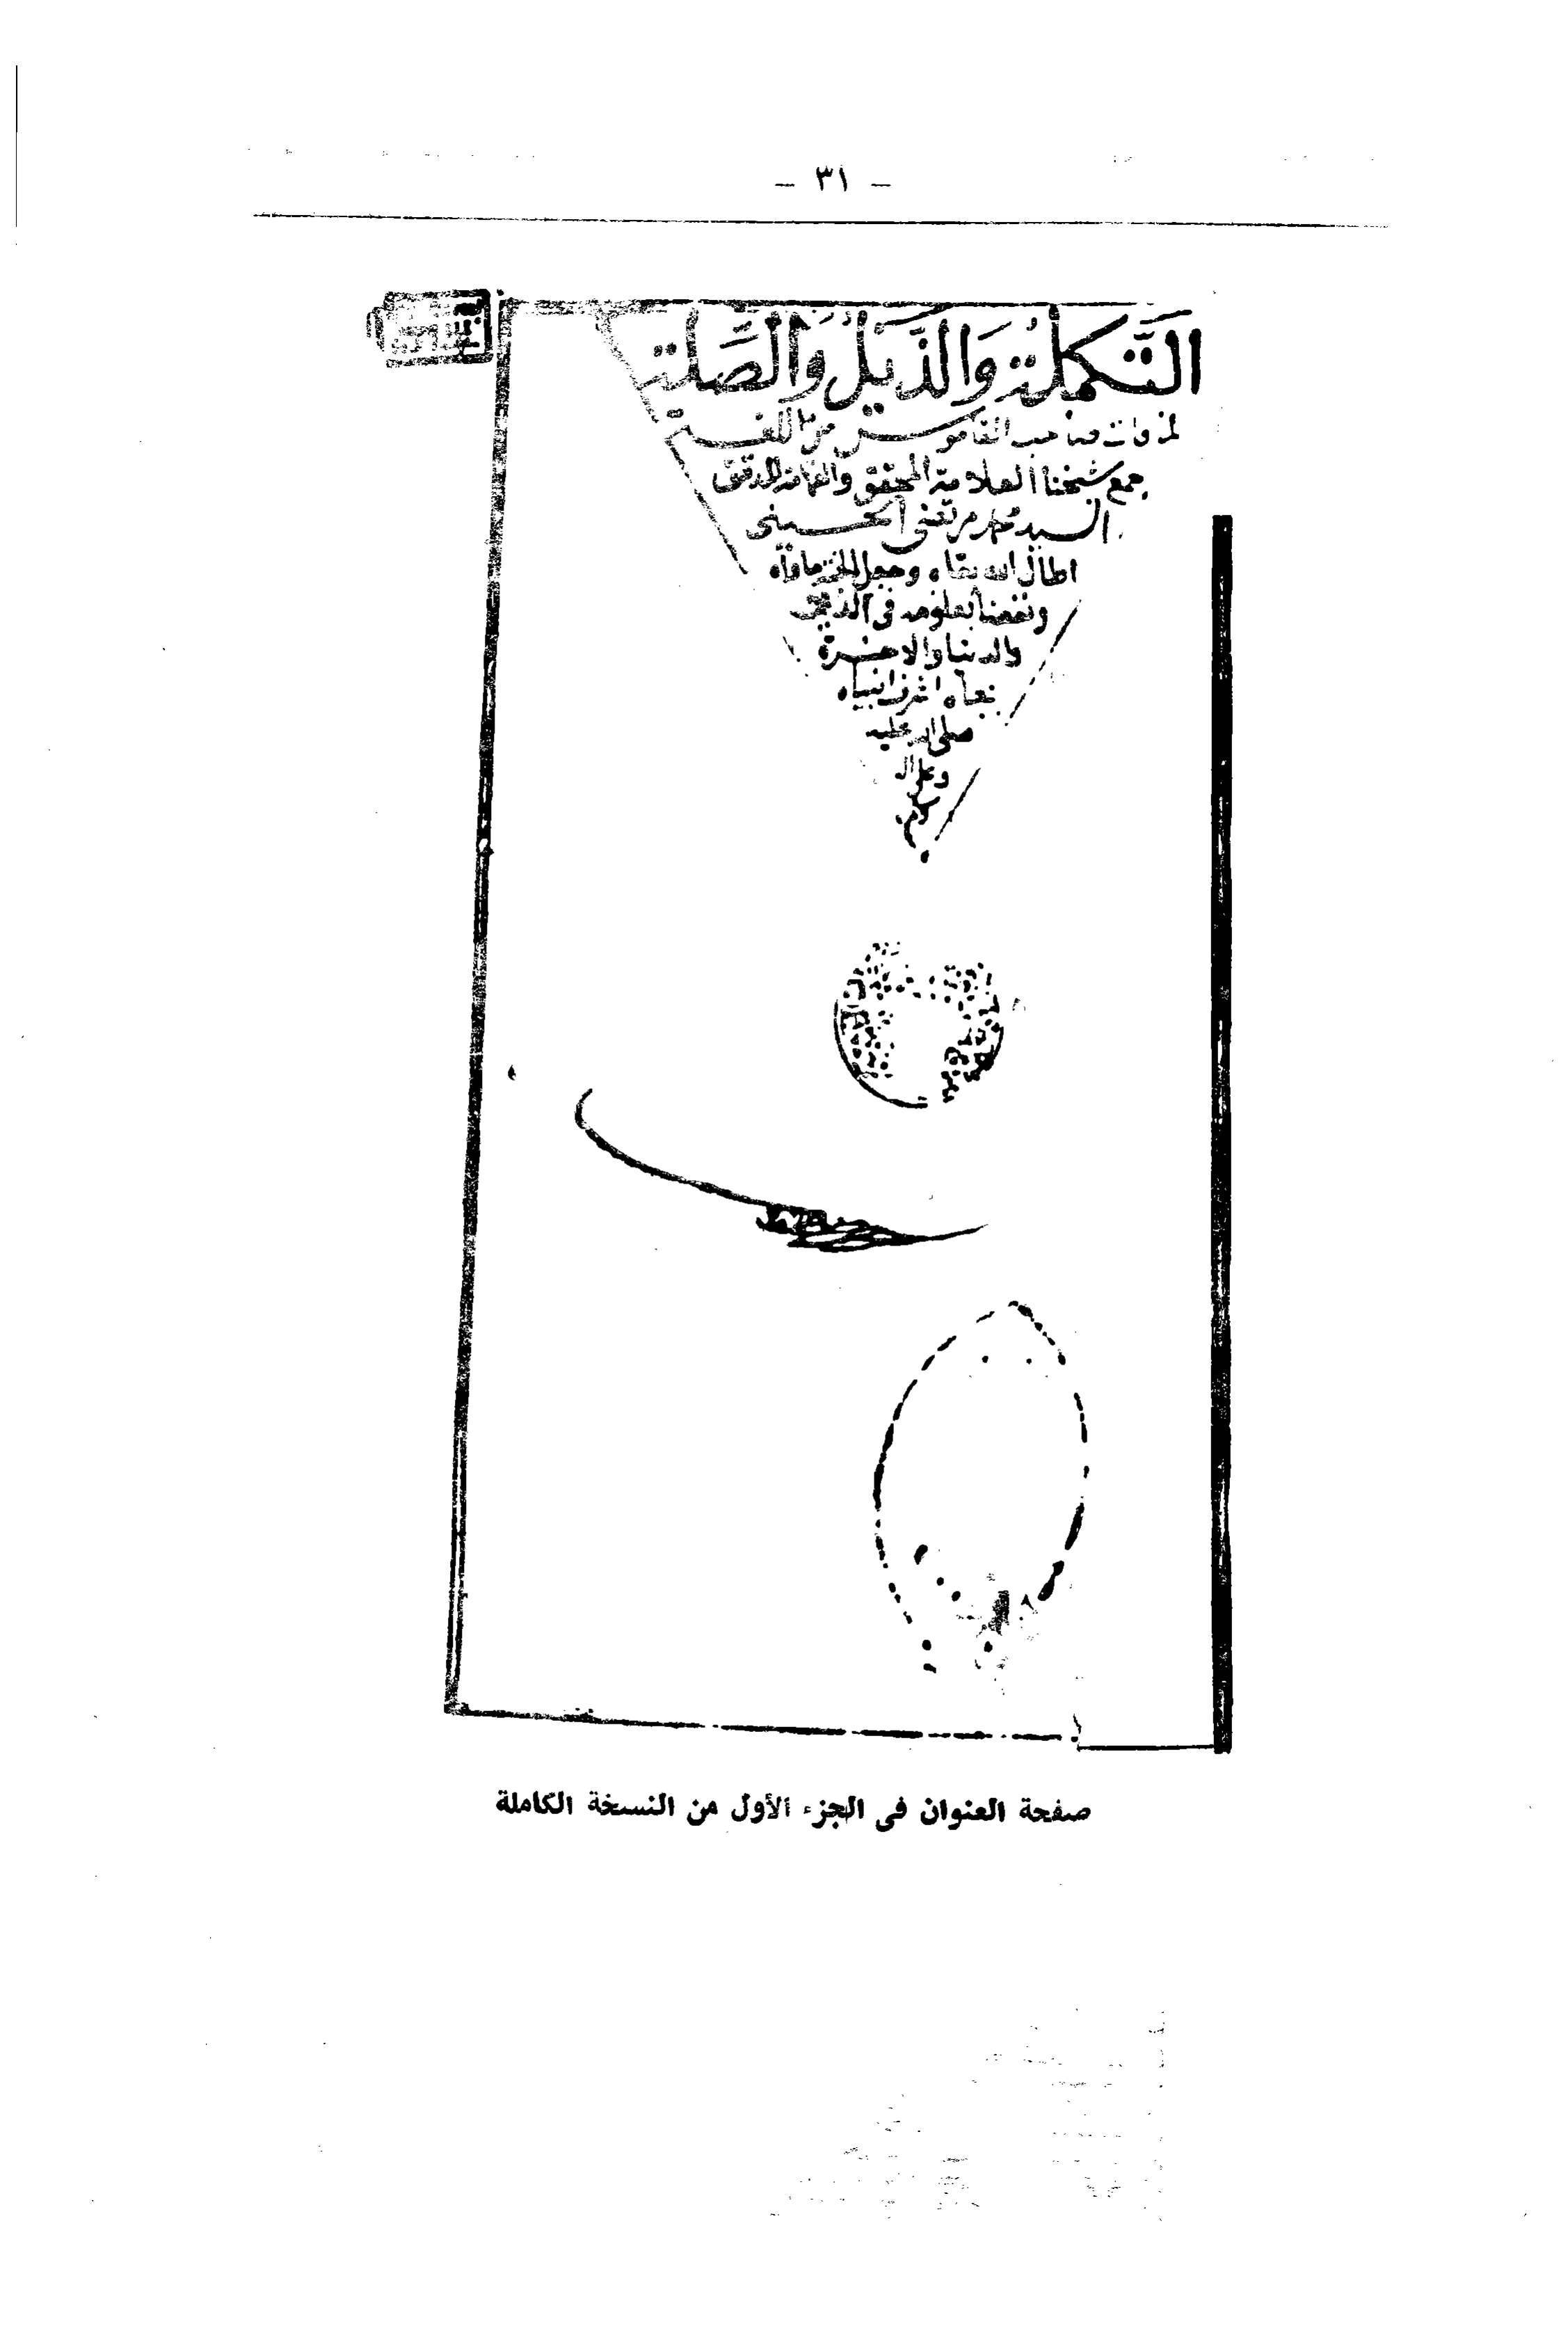 - ٣١ -
التَّكملة وَالذَّيلُ وَالصِّلة
لما فات صاحب القاموس من اللغة
جمع شيخنا العلامة المحقق والفهامة المدقق
السيد محمد مرتضى الحسينى
اطال الله بقاه وجعل الجنة ماواه
ونفعنا بعلومه فى الدين
والدنيا والاخرة
بجاه اشرف انبياه
صلى الله عليه
وعلى اله
وسلم
صفحة العنوان فى الجزء الأول من النسخة الكاملة